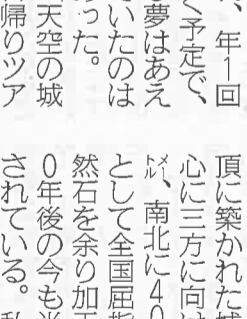 、年1回
く予定で、
夢はあえ
いたのは
あった。
天空の城
帰りツア
頂に築かれた城
心に三方に向け
㍍、南北に40
として全国屈指
然石を余り加工
0年後の今も
されている。私